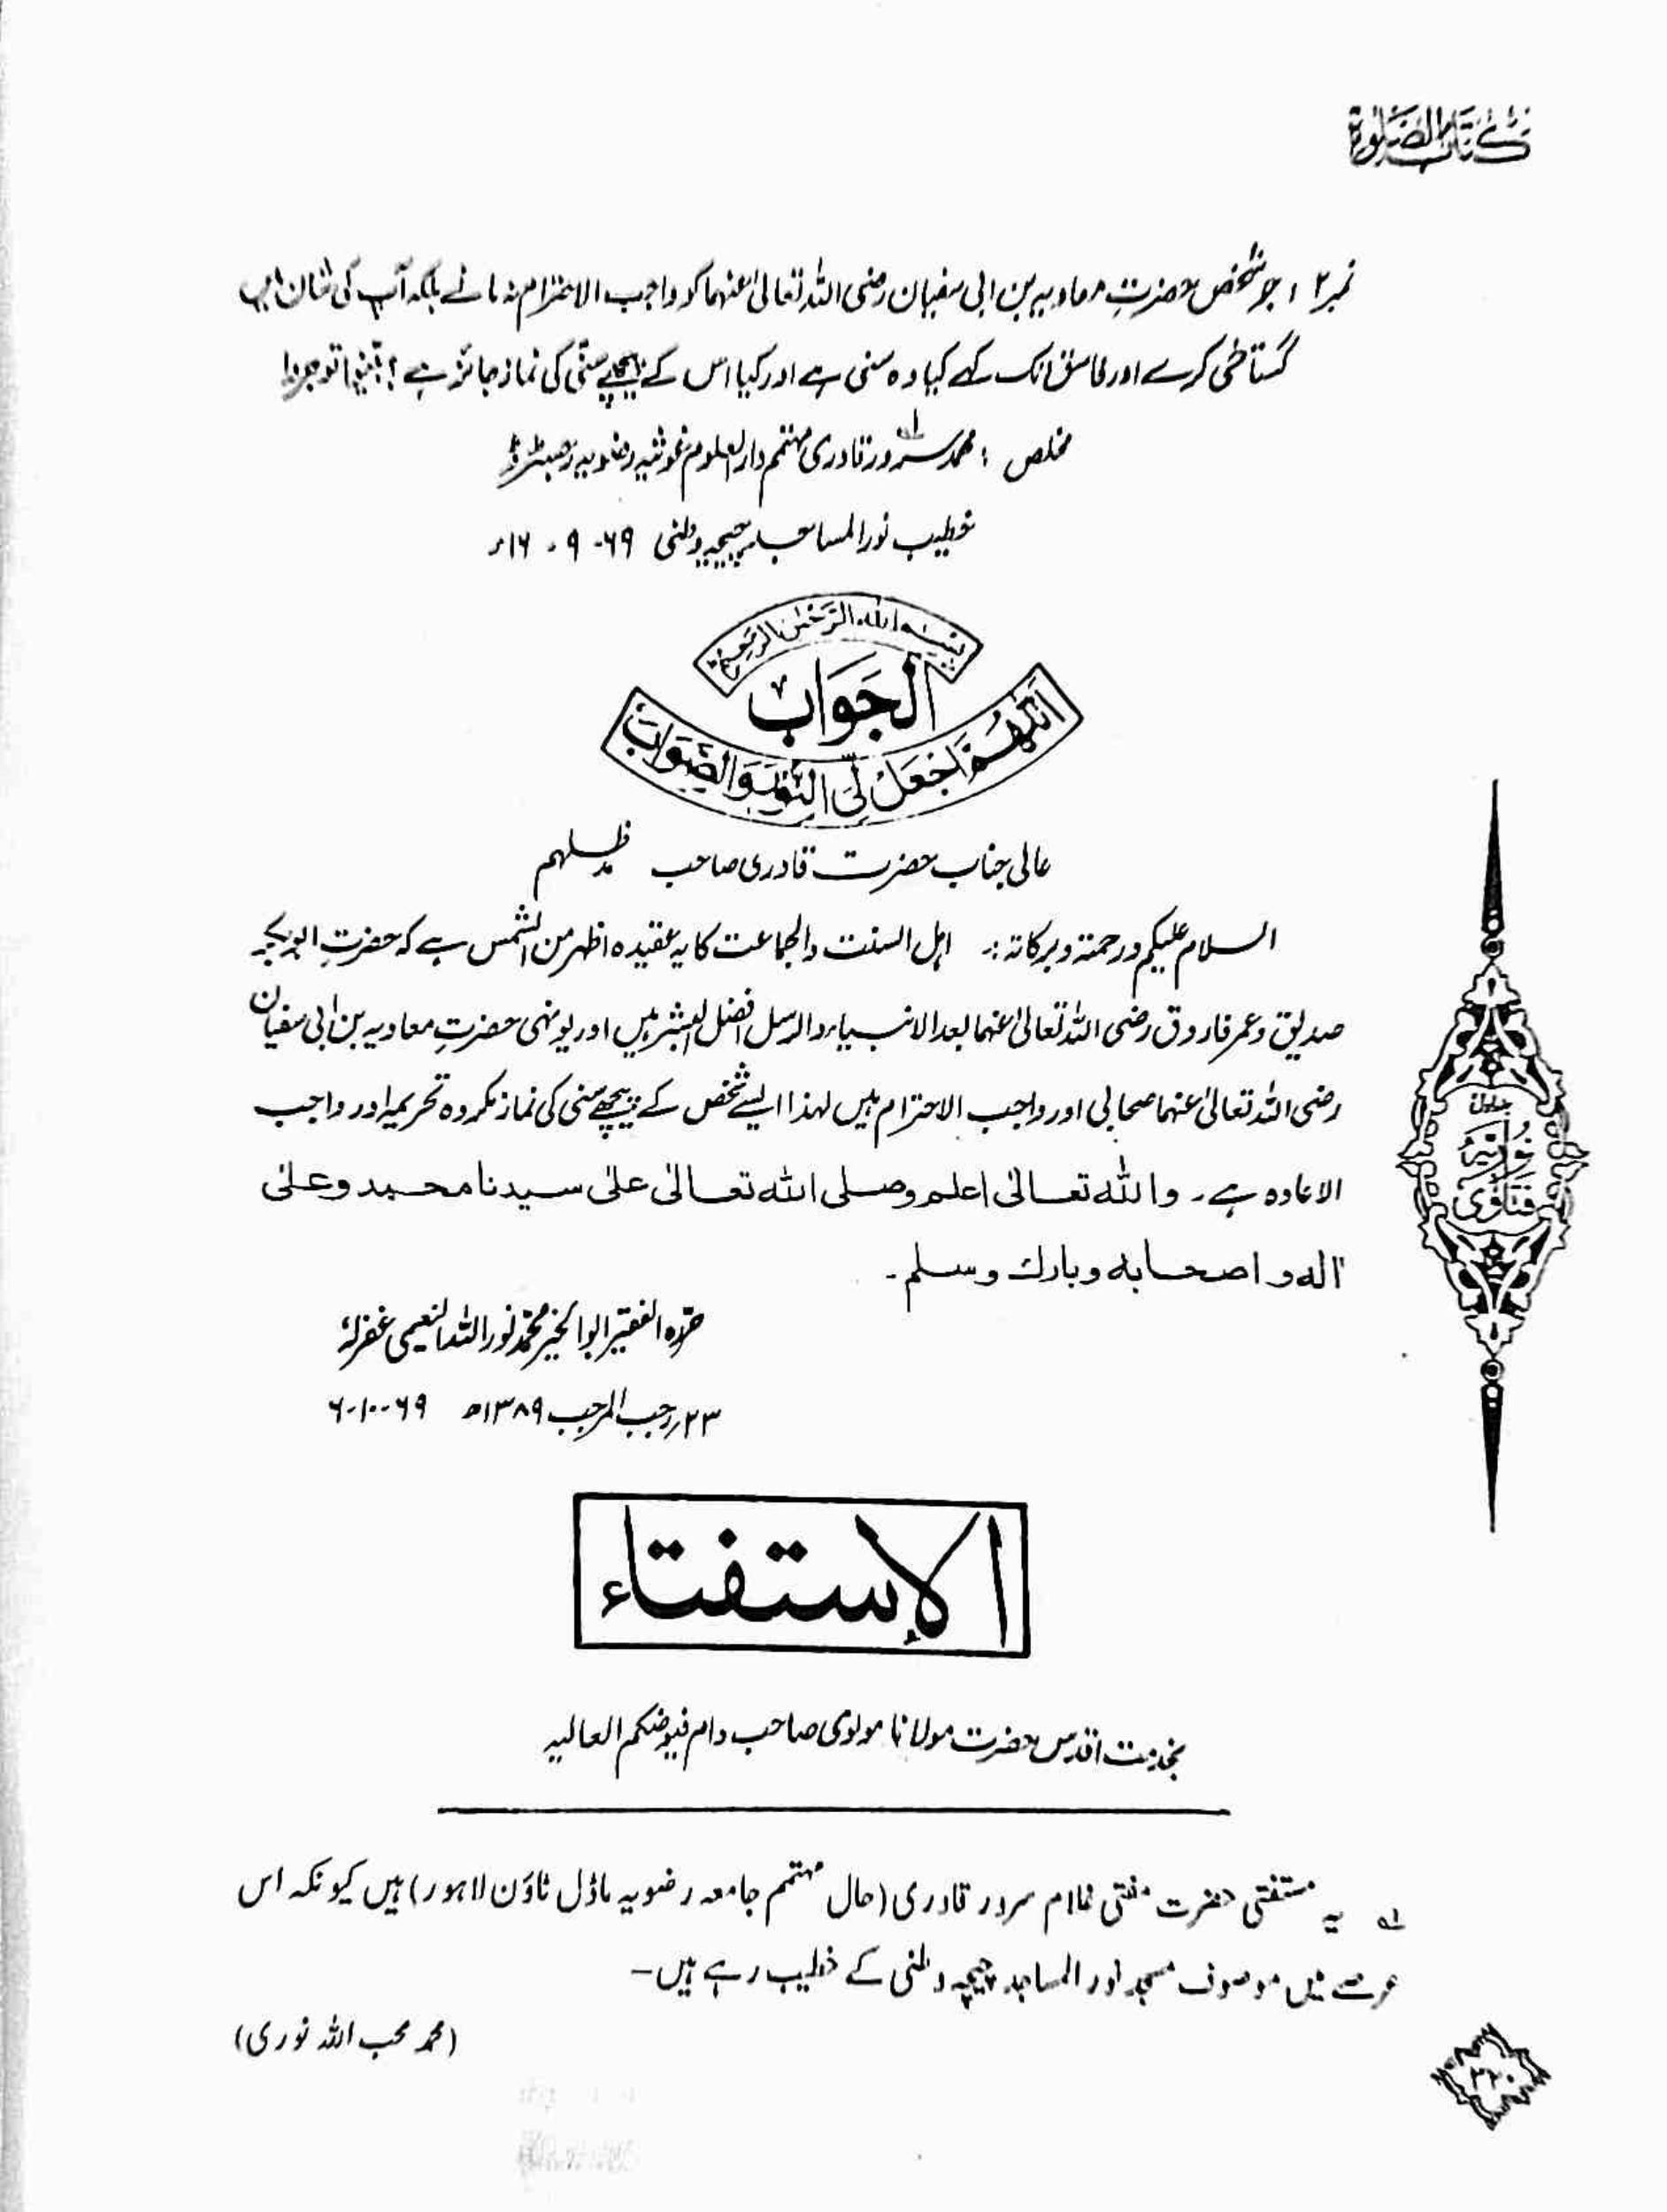 كتاب الصلوة
نمبر ۲ : جو شخص حضرتِ معاویہ بن ابی سفیان رضی اللہ تعالیٰ عنہما کو واجب الاحترام نہ مانے بلکہ آپ کی شان میں
گستاخی کرے اور فاسق تک کہے کیا وہ سنی ہے اور کیا اس کے پیچھے سنّی کی نماز جائز ہے ؟ بینوا توجروا
مخلص : محمد سرور قادری مہتمم دارالعلوم غوثیہ رضویہ رجسٹرڈ
خطیب نورالمساجد چیچہ وطنی ۶۹-۹-۱۶ء
بِسْمِ اللهِ الرَّحْمٰنِ الرَّحِيْمِ
الجَوَابُ
اَللّٰهُمَّ اجْعَلْ لِّيَ النُّوْرَ وَالصَّوَابَ
عالی جناب حضرت قادری صاحب مد ظلہم
السلام علیکم ورحمتہ وبرکاتہ :۔ اہل السنت والجماعت کا یہ عقیدہ اظہر من الشمس ہے کہ حضرتِ ابوبکر
صدیق و عمر فاروق رضی اللہ تعالیٰ عنہما بعد الانبیاء والرسل افضل البشر ہیں اور یونہی حضرتِ معاویہ بن ابی سفیان
رضی اللہ تعالیٰ عنہما صحابی اور واجب الاحترام ہیں لہذا ایسے شخص کے پیچھے سنی کی نماز مکروہ تحریمہ اور واجب
الاعادہ ہے۔ والله تعالیٰ اعلم وصلی الله تعالیٰ علیٰ سیدنا محمد وعلیٰ
اٰله و اصحابه وبارك وسلم۔
حرّرہ الفقیر ابوالخیر محمّد نوراللہ النعیمی غفرلہٗ
۲۳؍رجب المرجب ۱۳۸۹ھ ۶۹-۱۰-۶
جلد اول
نُورِيَّهْ
فَتَاوٰى
الإستفتاء
بخدمت اقدس حضرت مولانا مولوی صاحب دام فیوضکم العالیہ
لہ یہ مستفتی حضرت مفتی غلام سرور قادری (حال مہتمم جامعہ رضویہ ماڈل ٹاؤن لاہور) ہیں کیونکہ اس
عرصے میں موصوف مسجد نور المساجد چیچہ وطنی کے خطیب رہے ہیں—
(محمد محب اللہ نوری)
۳۲۰